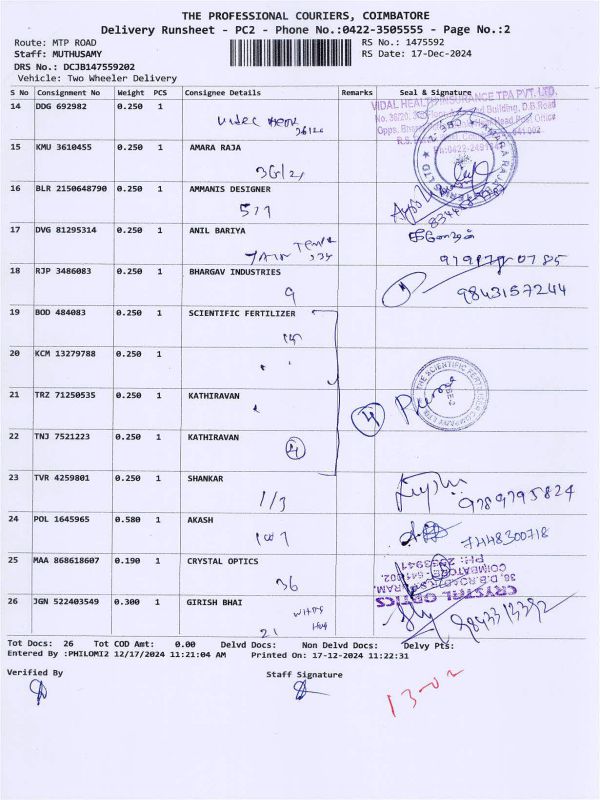 THE PROFESSIONAL COURIERS, COIMBATORE
Delivery Runsheet - PC2 - Phone No.:0422-3505555 - Page No.:2
Route: MTP ROAD RS No.: 1475592
Staff: MUTHUSAMY RS Date: 17-Dec-2024
DRS No.: DCJB147559202
Vehicle: Two Wheeler Delivery
S No Consignment No Weight PCS Consignee Details Remarks Seal & Signature
14 DDG 692982 0.250 1
VIDAL HEALTH INSURANCE TPA PVT. LTD.
15 KMU 3610455 0.250 1 AMARA RAJA
16 BLR 2150648790 0.250 1 AMMANIS DESIGNER
577
17 DVG 81295314 0.250 1 ANIL BARIYA
18 RJP 3486083 0.250 1 BHARGAV INDUSTRIES
9 9843157244
19 BOD 484083 0.250 1 SCIENTIFIC FERTILIZER
20 KCM 13279788 0.250 1
21 TRZ 71250535 0.250 1 KATHIRAVAN
22 TNJ 7521223 0.250 1 KATHIRAVAN
23 TVR 4259801 0.250 1 SHANKAR
1/3 9789795824
24 POL 1645965 0.580 1 AKASH
7448300718
25 MAA 868618607 0.190 1 CRYSTAL OPTICS
36
CRYSTAL OPTICS
26 JGN 522403549 0.300 1 GIRISH BHAI
21
Tot Docs: 26 Tot COD Amt: 0.00 Delvd Docs: Non Delvd Docs: Delvy Pts:
Entered By :PHILOMI2 12/17/2024 11:21:04 AM Printed On: 17-12-2024 11:22:31
Verified By Staff Signature
13-02